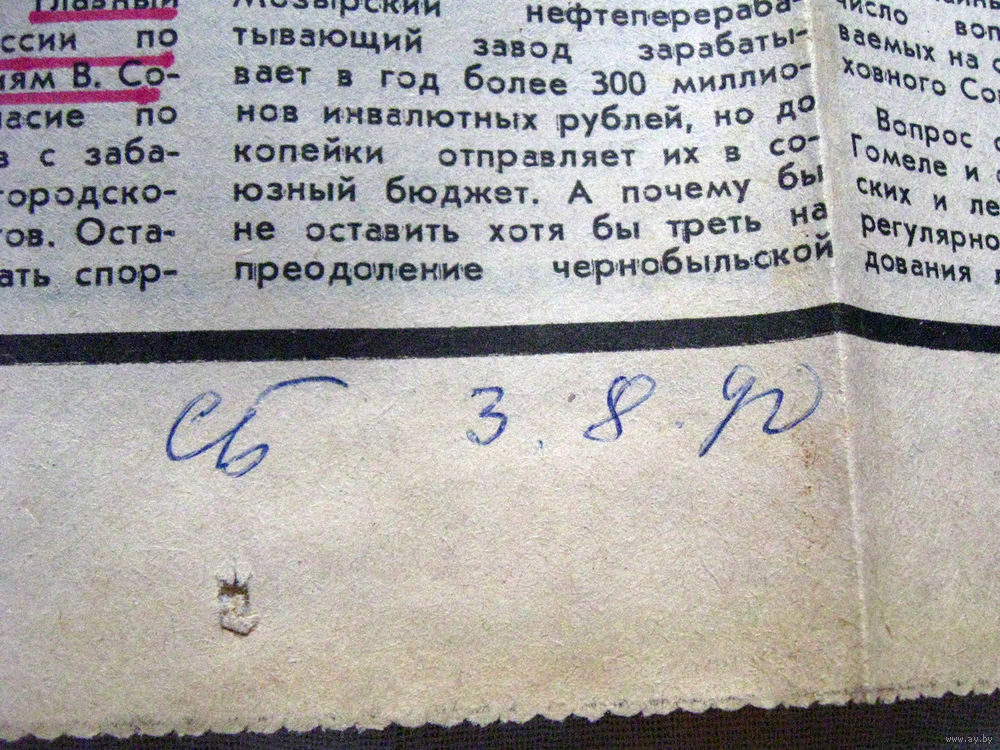 главный
ссии по
ниям В. Со-
ласие по
в с заба-
городско-
тов. Оста-
ать спор-
Мозырский нефтеперераба-
тывающий завод зарабаты-
вает в год более 300 миллио-
нов инвалютных рублей, но до
копейки отправляет их в со-
юзный бюджет. А почему бы
не оставить хотя бы треть на
преодоление чернобыльской
число воп
ваемых на с
ховного Сов
Вопрос
Гомеле и
ских и ле
регулярно
дования
СБ 3.8.90
www.ay.by